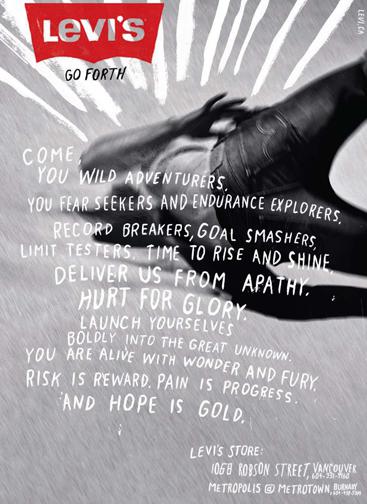 LEVI'S
LEVI.CA
GO FORTH
COME,
YOU WILD ADVENTURERS,
YOU FEAR SEEKERS AND ENDURANCE EXPLORERS,
RECORD BREAKERS, GOAL SMASHERS,
LIMIT TESTERS. TIME TO RISE AND SHINE,
DELIVER US FROM APATHY.
HURT FOR GLORY.
LAUNCH YOURSELVES
BOLDLY INTO THE GREAT UNKNOWN.
YOU ARE ALIVE WITH WONDER AND FURY.
RISK IS REWARD. PAIN IS PROGRESS.
AND HOPE IS GOLD.
LEVI'S STORE:
1068 ROBSON STREET, VANCOUVER
METROPOLIS @ METROTOWN, BURNABY